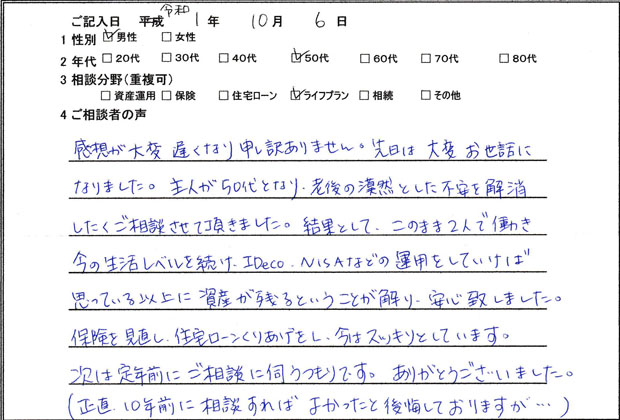 令和
ご記入日 平成 1 年 10 月 6 日
1 性別 ☑男性 □女性
2 年代 □20代 □30代 □40代 ☑50代 □60代 □70代 □80代
3 相談分野(重複可)
□資産運用 □保険 □住宅ローン ☑ライフプラン □相続 □その他
4 ご相談者の声
感想が大変遅くなり申し訳ありません。先日は大変お世話に
なりました。主人が50代となり、老後の漠然とした不安を解消
したくご相談させて頂きました。結果として、このまま2人で働き
今の生活レベルを続け、IDeco、NISAなどの運用をしていけば
思っている以上に資産が残るということが解り、安心致しました。
保険を見直し、住宅ローンくりあげをし、今はスッキリとしています。
次は定年前にご相談に伺うつもりです。ありがとうございました。
(正直、10年前に相談すればよかったと後悔しておりますが…)